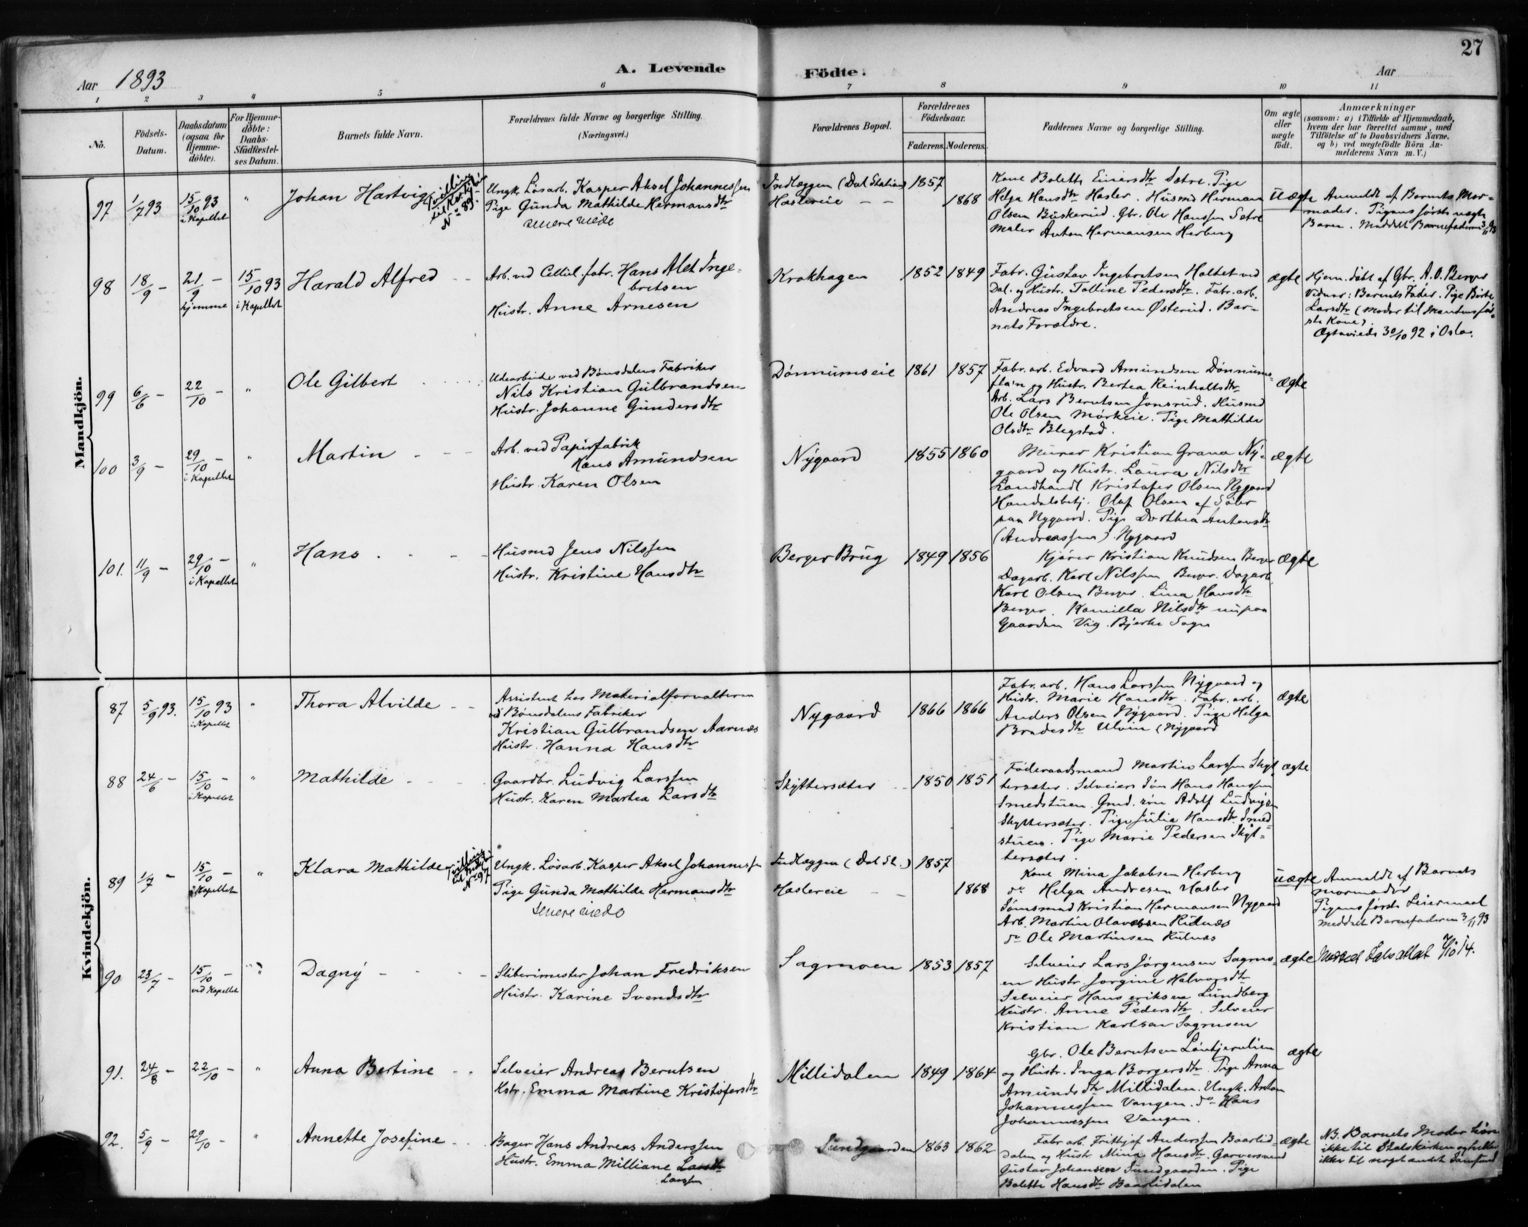 27
Aar 1893
A. Levende Födte.
Aar
1 2 3 4 5 6 7 8 9 10 11
No.
Födsels-
Datum.
Daabsdatum
(ogsaa for
Hjemme-
döbte).
For Hjemme-
döbte:
Daabs-
Stadfæstel-
ses Datum.
Barnets fulde Navn.
Forældrenes fulde Navne og borgerlige Stilling.
(Næringsvei.)
Forældrenes Bopæl.
Forældrenes
Födselsaar.
Faderens. Moderens.
Faddernes Navne og borgerlige Stilling.
Om ægte
eller
uægte
födt.
Anmærkninger
(saasom: a) i Tilfælde af Hjemmedaab,
hvem der har forrettet samme, med
Tilföielse af to Daabsvidners Navne,
og b) ved uægtefödte Börn An-
melderens Navn m. V.)
Mandkjön.
97 1/7 93 15/10 93 i Kapellet " Johan Hartvig
Tvilling N: 89.
Ungk. Løsarb. Kasper Aksel Johannessen
Pige Gunda Mathilde Hermansdtr
Indlæggen (Dal Station) 1857
Haslereie - - 1868
Helga Hansdtr Hasler. Husmd Herman
Olsen Buskerud. Gbr. Ole Hanssen Sætre
Maler Anton Hermansen Herberg
Uægte Anmeldt af Barnets Mor-
moder. Pigens første uægte
Barn. Meddelt Barnefaderen 3/11 93
98 18/9 - 21/9 - hjemme 15/10 93 i Kapellet Harald Alfred - -
Arb. ved Cellul. fabr. Hans Alet Inge-
bretsen
Hustr. Anne Arnesen
Krokhagen 1852 1849
Fabr. Gustav Ingebretsen Holtet ved
Dal. og Hustr. Talline Pedersdtr. Fabr. arb.
Andreas Ingebretsen Østerud. Bar-
nets Forældre.
ægte
Hjem. døbt af Gbr. A. O. Berger
Vidner: Barnets Fader. Pige Birthe
Larsdtr (Moder til Mandens før-
ste Kone).
Ægteviede 30/10 92 i Oslo.
99 6/6 - 22/10 - " Ole Gilbert
Udearbeider ved Bønsdalens Fabriker
Nils Kristian Gulbrandsen
Hustr. Johanne Gundersdtr
Dønnumseie 1861 1857
Fabr. arb. Edvard Amundsen Dønnums-
fla'n og Hustr. Bertea Reinholtsdtr
Arb. Lars Berntsen Jonsrud. Husmd
Ole Olsen Mørkeie. Pige Mathilde
Olsdtr Blegstad.
ægte
100 3/9 - 29/10 - i Kapellet " Martin - - -
Arb. ved Papirfabrik
Hans Amundsen
Hustr. Karen Olsen
Nygaard 1855 1860
Murer Kristian Grana Ny-
gaard og Hustr. Laura Nilsdtr
Landhandl Kristofer Olsen Nygaard
Handelsbetj. Olaf Olsen af
paa Nygaard. Pige Dorthea Antonsdtr
(Andreassen) Nygaard
ægte
101. 11/9 - 29/10 - i Kapellet " Hans - - -
Husmd Jens Nilssen
Hustr. Kristine Hansdtr
Berger Brug 1849 1856
Kjører Kristian Knudsen Berger
Dagarb. Karl Nilssen Berger. Dagarb.
Karl Olsen Berger. Lina Hansdtr
Berger. Kamilla Nilsdtr nu paa
Gaarden Vig. Bjerke Sogn
ægte
Kvindekjön.
87 5/9 93. 15/10 93 i Kapellet " Thora Alvilde - -
Assistent hos Materialforvalteren
ved Bønsdalens Fabriker
Kristian Gulbrandsen Aarnæs
Hustr. Hanna Hansdtr
Nygaard 1866 1866
Fabr. arb. Hans Larssen Nygaard og
Hustr. Marie Hansdtr. Fabr. arb.
Anders Olsen Nygaard. Pige Helga
Bradesdtr Ulvin (Nygaard
ægte
88 24/6 - 15/10 - i Kapellet " Mathilde - - -
Gaardbr. Ludvig Larssen
Hustr. Karen Martea Larsdtr
Skyttersæter 1850 1851
Føderaadsmand Martin Larssen Skyt-
tersæter. Selveiers Søn Hans Hanssen
Smedstuen. Gmd. søn Adolf Ludvigsen
Skyttersæter. Pige Julie Hansdtr Smed-
stuen. Pige Marie Pedersen Skyt-
tersæter.
ægte
89 1/7 - 15/10 - i Kapellet " Klara Mathilde
Tvilling N: 97
Ungk. Løsarb. Kasper Aksel Johannessen
Pige Gunda Mathilde Hermansdtr
Indlæggen (Dal St.) 1857
Haslereie - - 1868
Kone Mina Jakobsen Herberg
do Helga Andresen Hasler
Tømmermd Kristian Hermansen Nygaard
Arb. Martin Olavessen Rudnæs
do Ole Martinsen Rudnæs
uægte
Anmeldt af Barnets
mormoder
Pigens første Leiermaal
Meddelt Barnefaderen 3/11 93
90 23/7 - 15/10 - ved Kapellet " Dagny - - -
Sliberimester Johan Fredriksen
Hustr. Karine Svendsdtr
Sagmoen 1853 1857
Selveier Lars Jørgensen Sagmo-
en Hustr Jorgine Halvorsdtr
Selveier Hans Eriksen Lundberg
Hustr. Anne Pedersdtr. Selveier
Kristian Karlsen Sagmoen
ægte
91. 24/8 - 22/10 - " Anna Bertine - -
Selveier Andreas Berntsen
Hstr. Emma Martine Kristofersdtr
Millidalen 1849 1864
Gbr. Ole Berntsen
og Hustr. Inga Borgersdtr. Pige Anna
Amundsdtr Millidalen. Ungk. Anton
Johannessen Vangen. do Hans
Johannessen Vangen.
ægte
92. 5/9 - 29/10 - " Annette Josefine - -
Bager Hans Andreas Anderssen
Hustr. Emma Milliane
Larssen
Sundgaarden 1863 1862
Fabr. arb. Frithjof Anderssen Baarlid-
dalen og Hustr Mina Hansdtr. Garversvend
Gustav Johansen Sundgaarden. Pige
Bolette Hansdtr Baarlidalen
ægte
NB. Barnets Moder hører
ikke til Statskirken og heller
ikke til noget andet Samfund